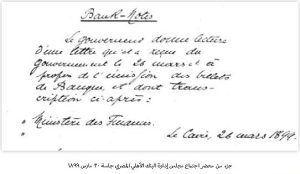 Bank-Notes
Le Gouverneur donne lecture
d'une lettre qu'il a reçue du
gouvernement le 26 mars et à
propos de l'émission des billets
de Banque et dont trans-
cription ci-après :
" Ministère des Finances.
" Le Caire, 26 mars 1899.
جزء من محضر اجتماع مجلس إدارة البنك الأهلي المصري جلسة ٣٠ مارس ١٨٩٩